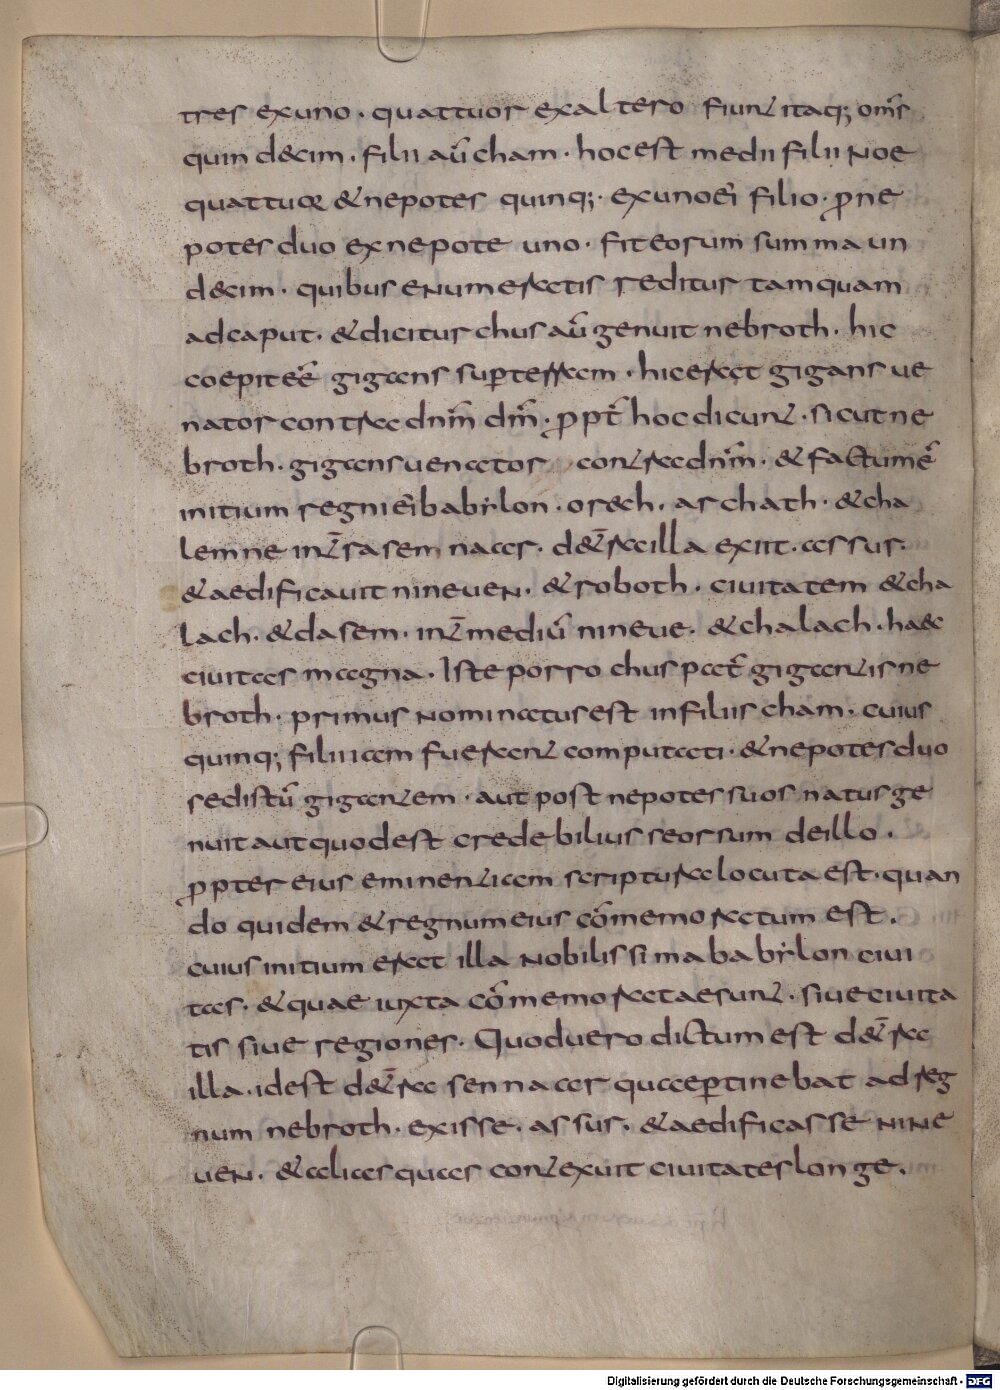 tres exuno · quattuor exaltero fiunt itaq; om̅s
quindecim · filii au̅ cham · hocest medii filii Noe
quattuor & nepotes quinq; · exuno ei filio · p̲ne
potes duo exnepote uno · fit eorum summa un
decim · quibus enumeratis reditur tamquam
adcaput · & dicitur chus au̅ genuit nebroth · hic
coepit ee̅ gigans sup̲ terram · hic erat gigans ue
nator contra dn̅m dm̅ · p̲pt̅ hoc dicunt · sicut ne
broth · gigans uenator contra dn̅m · & factum e̅
initium regni ei babylon · orech · archath · & cha
lemne int̅rasennaar · det̅ra illa exiit · assur ·
& aedificauit nineuen · & roboth · ciuitatem & cha
lach · & dasem · int̅ mediu̅ nineue · & chalach · haec
ciuitas magna · Iste porro chus pat̅ gigantis ne
broth · primus Nominatus est in filiis cham · cuius
quinq; filii iam fuerant computati · & nepotes duo
sed istu̅ gigantem · aut post nepotes suos natus ge
nuit aut quod est credebilius seorsum de illo ·
p̲pter eius eminentiam scriptura locuta est · quan
do quidem & regnum eius co̅memoratum est ·
cuius initium erat illa Nobilissima babylon ciui
tas · & quae iuxta co̅memoratae sunt · siue ciuita
tis siue regiones · Quoduero dictum est det̅ra
illa · idest det̅ra sennaar quaep̲tinebat ad reg
num nebroth · exisse · assur · & aedificasse NiNe
ueN · & alias quas contexuit ciuitates longe ·
Digitalisierung gefördert durch die Deutsche Forschungsgemeinschaft - DFG